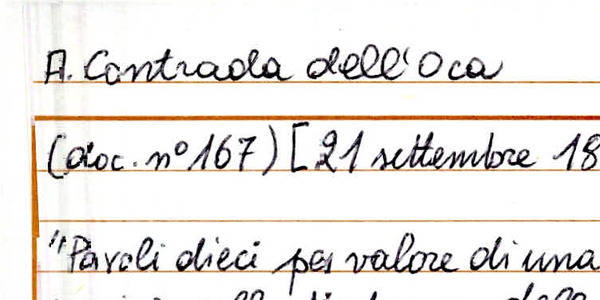 A. Contrada dell'Oca
(doc. n° 167) [21 settembre 18
"Paroli dieci per valore di una